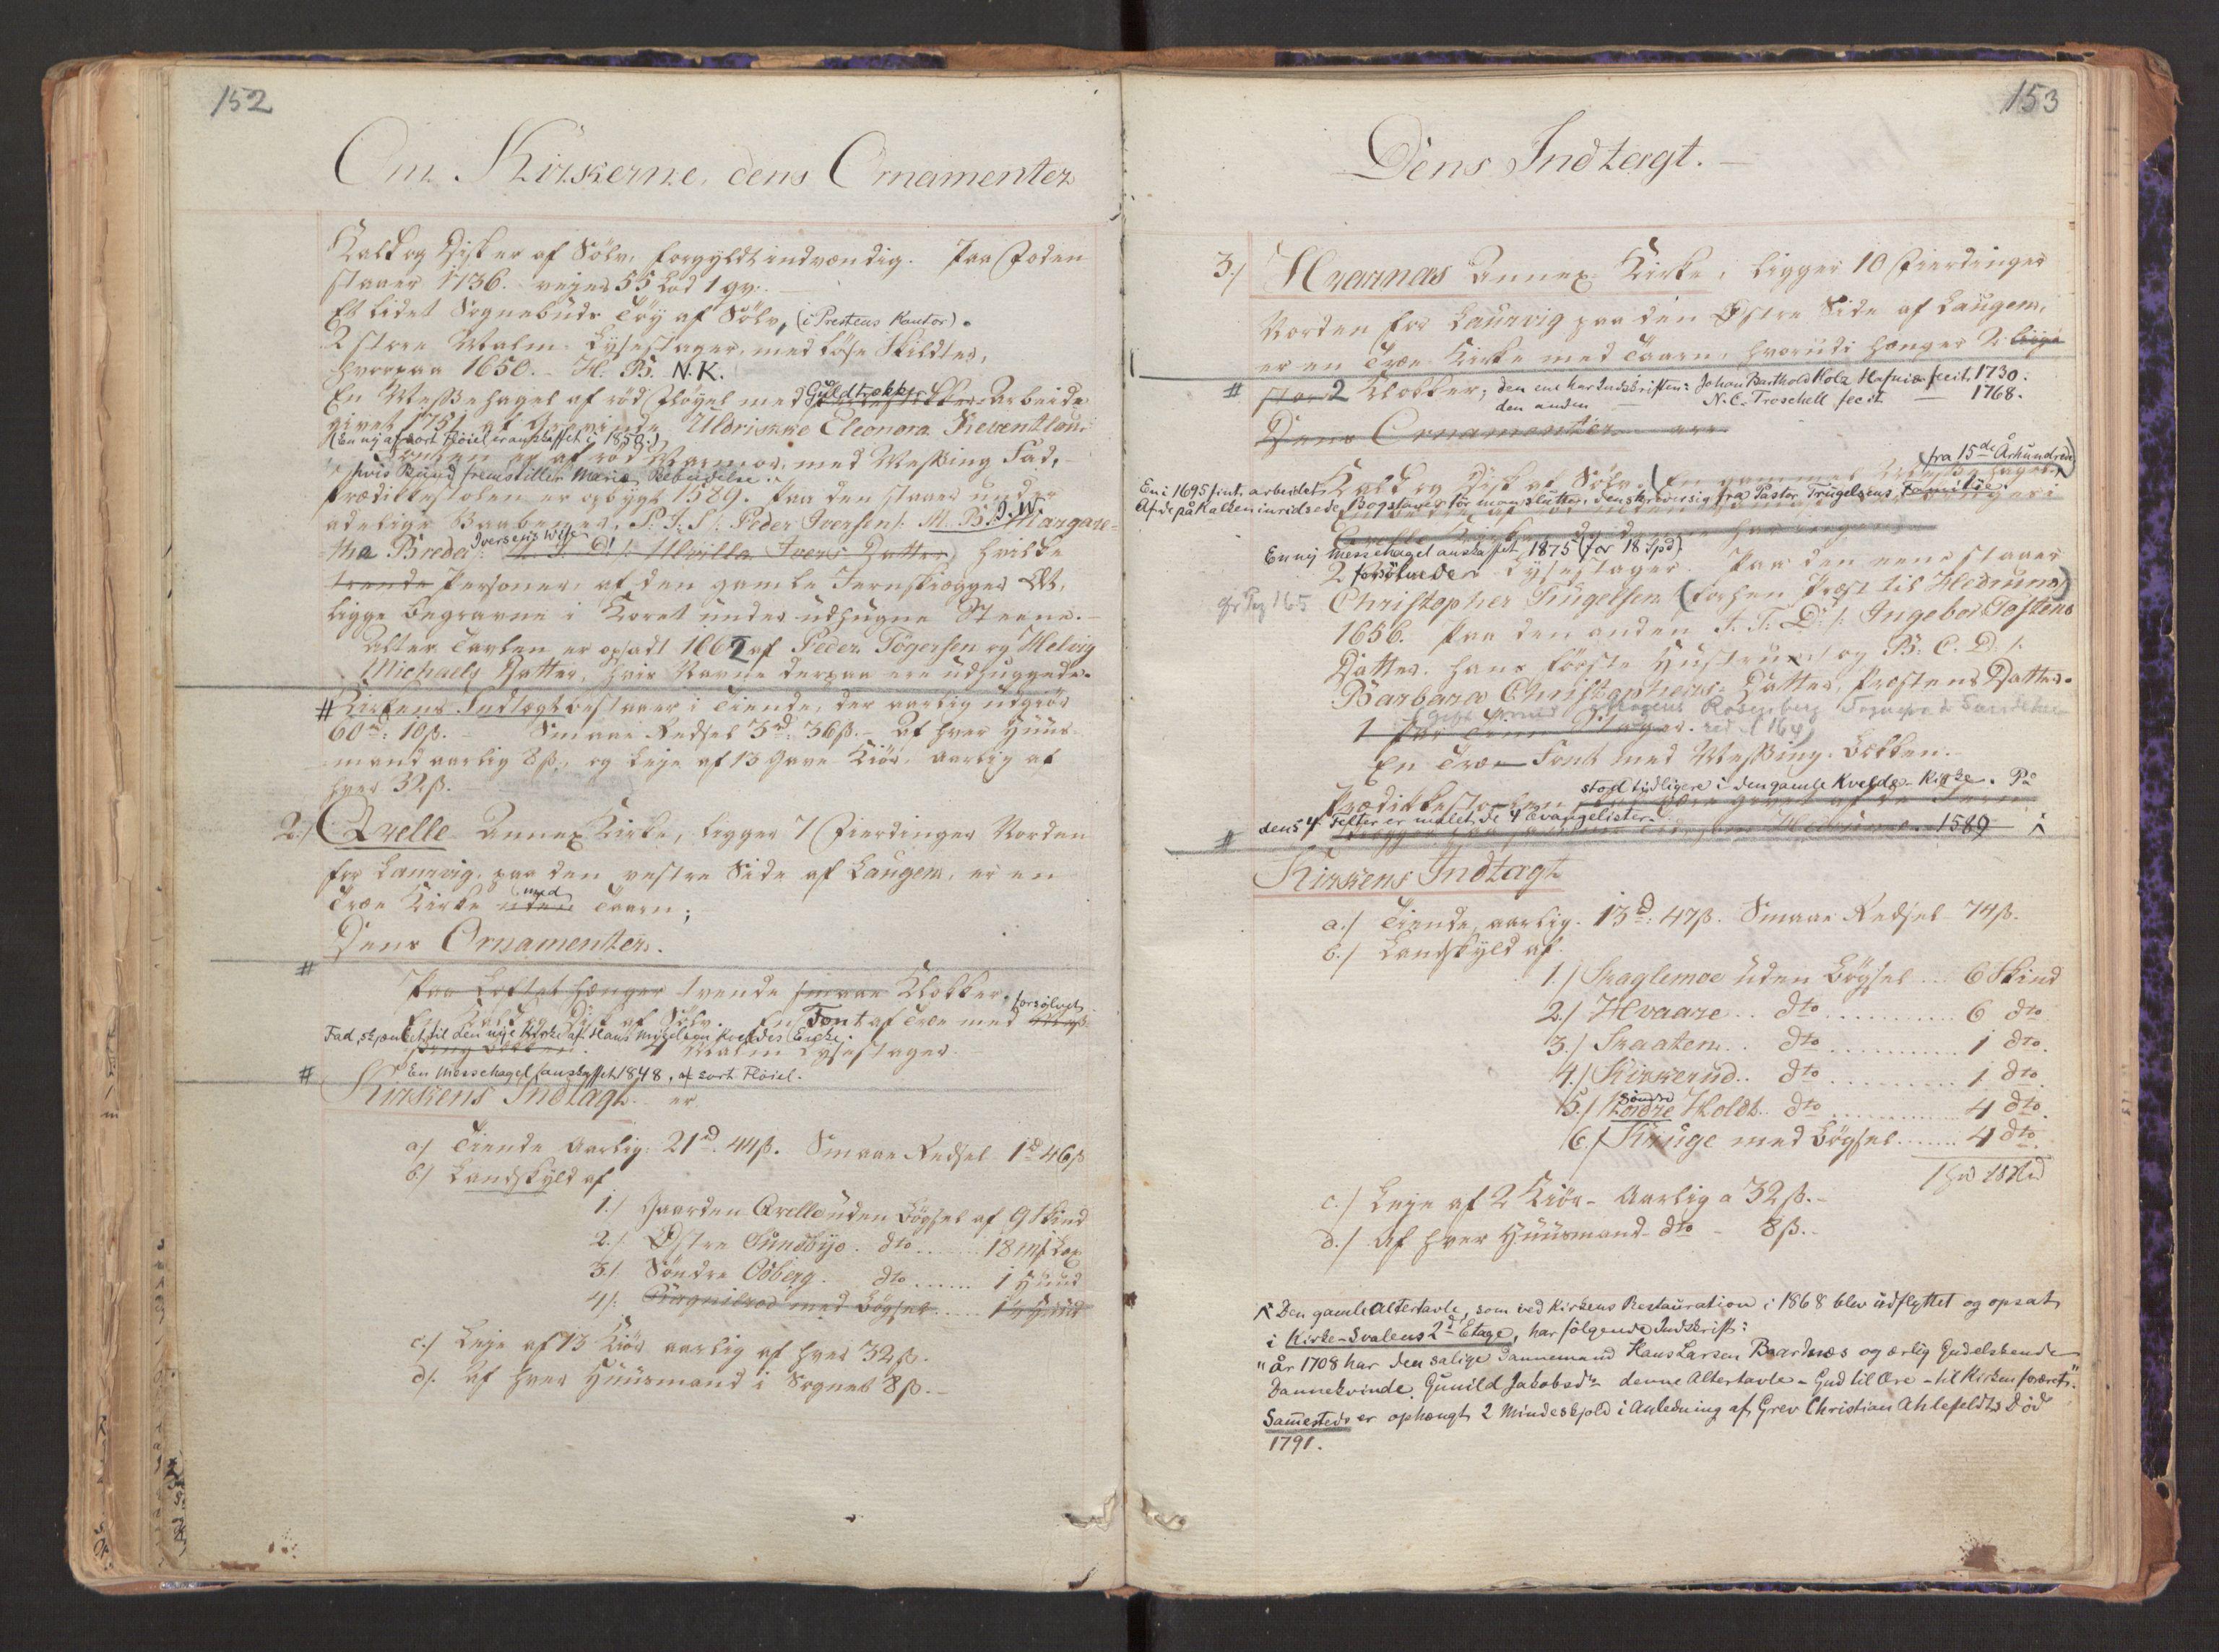 152
Om Kirkerne, dens Ornamenter
Kalk og Disk er af Sölv, forgyldt indvendig. Paa Foden
staaer 1736. vejer 55 Lod 1 qv.
Et lidet Sognebuds Töÿ af Sölv, (i Prestens Kontor).
2 store Malm Lysestager, med löse Skildter,
hvorpaa 1650. H. B. N.K.
En Messehagel af röd Fløyel med Guldtrækker Arbeide
givet 1751 af Grevinde Uldrikke Eleonora Reventlou.
(En ny af sort Fløiel er anskaffet i 1859.)
Fonten er af röd Marmor, med Messing Fad,
hvis Bund fremstiller Mariæ Bebudelse.
Prædikestolen er opbÿgt 1589. Paa den staaer under
adelige Vaabener, P: I: S /: Peder Iversen /: M. B. I. W. Margare-
tha Breder Iversens Wife M. I. D /: Ulvilla Ivers Datter hvilke
trende Personer, af den gamle Jernskiægges Æt,
ligge begravne i Koret under udhugne Steene.
Alter Tavlen er opsadt 1662 af Peder Tögersen og Helvig
Michaels Datter, hvis Navne derpaa ere udhuggede.
# Kirkens Indtægt bestaaer i Tiende, der aarlig udgiör
60 rd: 10 ß. Smaae Redsel 3 rd: 36 ß. Af hver Huus-
mand aarlig 8 ß, og Leje af 13 Gave Kiör, aarlig af
hver 32 ß.
2./ Qvelle Annex Kirke, ligger 7 Fierdinger Norden
for Laurvig, paa den vestre Side af Laugen, er en
Træe Kirke uden med Taarn;
Dens Ornamenter.
#
Paa Loftet hænger tvende smaae Klokker,
En Kalk og Disk af Sölv. En Font af Træe med forsølvet
Fad, skjænket til den nye Kirke af Hans Mikelsen Kveldes Enke.
4 Malm Lysestager.
# En Messehagel anskaffet 1848, af sort Fløiel.
Kirkens Indtægt er
a./ Tiende Aarlig: 21 rd. 44 ß. Smaae Redsel 1 d 46 ß
b./ Landskyld af
1./ Gaarden Qvelle uden Bögsel af 9 Skind
2./ Østre Sundbÿe dto ...... 18 mk
3./ Söndre Odberg dto ...... 1 Huud
4/: med Bögsel ..... Huud
c./ Leje af 13 Kiör aarlig af hver 32 ß.
d/. Af hver Huusmand i Sognet 8 ß.
153
Dens Indtægt.
3./ Hvarnæs Annex Kirke, ligger 10 Fierdinger
Norden for Laurvig paa den Østre Side af Laugen,
er en Træe Kirke med Taarn, hvorudi hænger 2 lige
# store 2 Klokker; den ene har Indskriften: Johan Barthold Holz Hafniæ fecit 1730.
den anden — N. C. Troschell fecit — 1768.
Dens Ornamenter ere
Kalk og Disk af Sölv. (En gammel Messehagel (fra 15de Århundrede)
En i 1695 fint arbeidet
Af de på Kalken inridsede Bogstaver tør man slutte, den skriver sig fra Pastor Trugelsens Familie.
En ny Messehagel anskaffet 1875 (for 18 Spd)
2 forsølvede Lysestager. Paa den eene staaer
Christopher Trugelsen (forhen Præst til Hedrum)
1656. Paa den anden I. T: D: /: Ingebor Tostens
Datter, hans første Hustrue /: og B: C. D. /:
Barbara Christophers Datter, Præstens Datter.
En Træe Font med Messing Bekken.
Prædikestolen stod tidligere i den gamle Kvelde-Kirke. På
dens 4 Felter er malet de 4 Evangelister.
# 1589
Kirkens Indtægt
a./ Tiende, aarlig. 13 d: 47 ß. Smaae Redsel 74 ß.
b./ Landskyld af
1./ Skaglemoe uden Bögsel ... 6 Skind
2./ Hvaare .. dto ............ 6 dto
3./ Skaatem .. dto ............ 1 dto.
4./ Kirkerud .. dto ............ 1 dto
5./ Nordre Söndre Holdt .. dto ............ 4 dto.
6./ Kruge med Bögsel ....... 4 dto.
c./ Leje af 2 Kiör – Aarlig a 32 ß.
d./ Af hver Huusmand dto – 8 ß.
Den gamle Altertavle, som ved Kirkens Restauration i 1868 blev udflyttet og opsat
i Kirke-Svalens 2d Etage, har følgende Indskrift:
"år 1708 har den salige Dannemand Hans Larsen Baardnæs og ærlig Gudelskende
Dannekvinde Gunild Jakobsdr denne Altertavle – Gud til Ære – til Kirken foræret."
Samesteds er ophængt 2 Mindeskjold i Anledning af Grev Christian Ahlefeldts Død
1791.